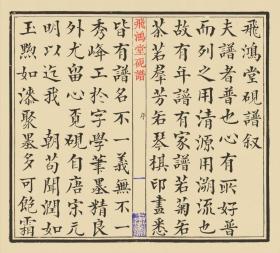 飛鴻堂硯譜叙
夫譜者普也心有所好普
而列之用清源用溯流也
故有年譜有家譜若菊若
茶若羣芳若琴棋印畫悉
飛鴻堂硯譜
序
一
皆有譜名不一義無不一
秀峰工於字學筆墨精良
外尤留心覓硯自唐宋元
明以迄我 朝苟聞潤如
玉黝如漆聚墨多可飽霜